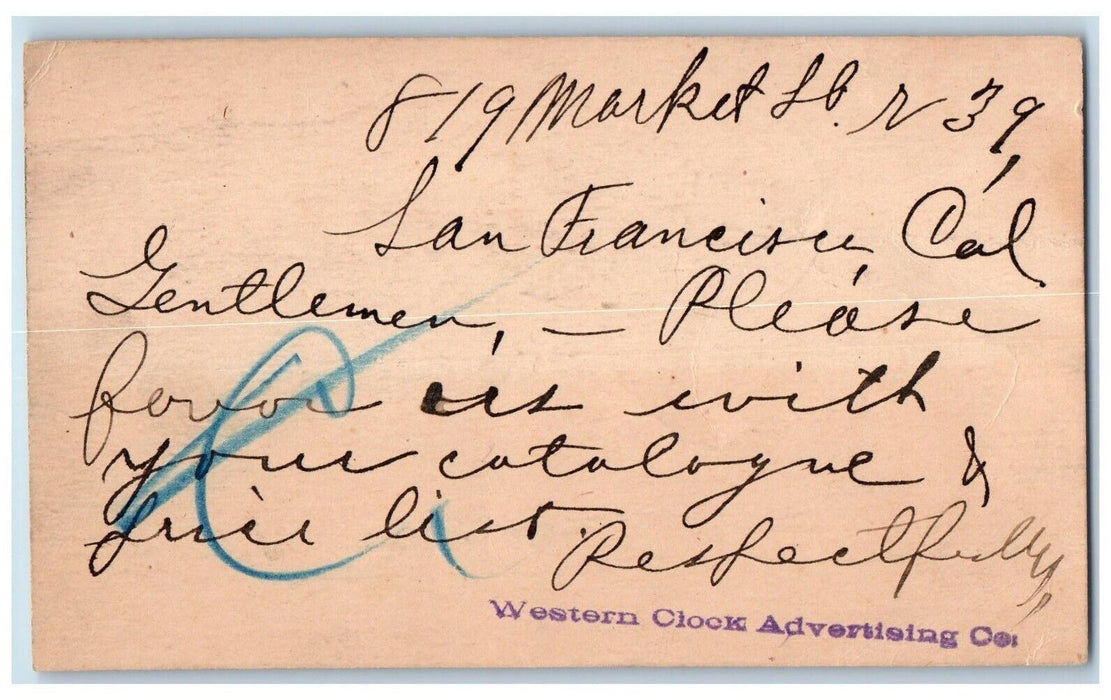 819 Market St. r 39,
San Francisco, Cal
Gentlemen, — Please
favor us with
your catalogue &
price list.
Respectfully,
Western Clock Advertising Co.